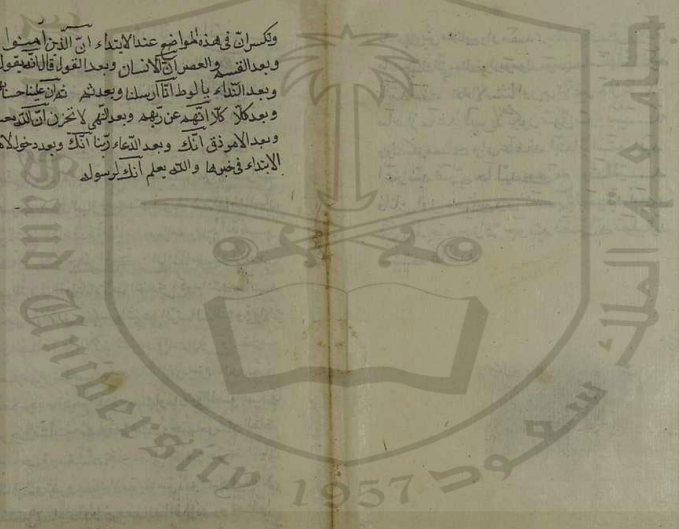 وتكسر ان فى هذه المواضع عند الابتداء ان الذين آمنوا
وبعد القسم والعصر ان الانسان وبعد القول قال انه يقول
وبعد النداء يا لوط انا ارسلنا وبعد ثم ثم ان علينا
وبعد كلا كلا انهم عن ربهم وبعد النهى لا تحزن ان الله
وبعد الامر ذق انك وبعد الدعاء ربنا انك وبعد دخول
الابتداء فى خبرها والله يعلم انك لرسوله
جامعة الملك سعود
King Saud University
1957